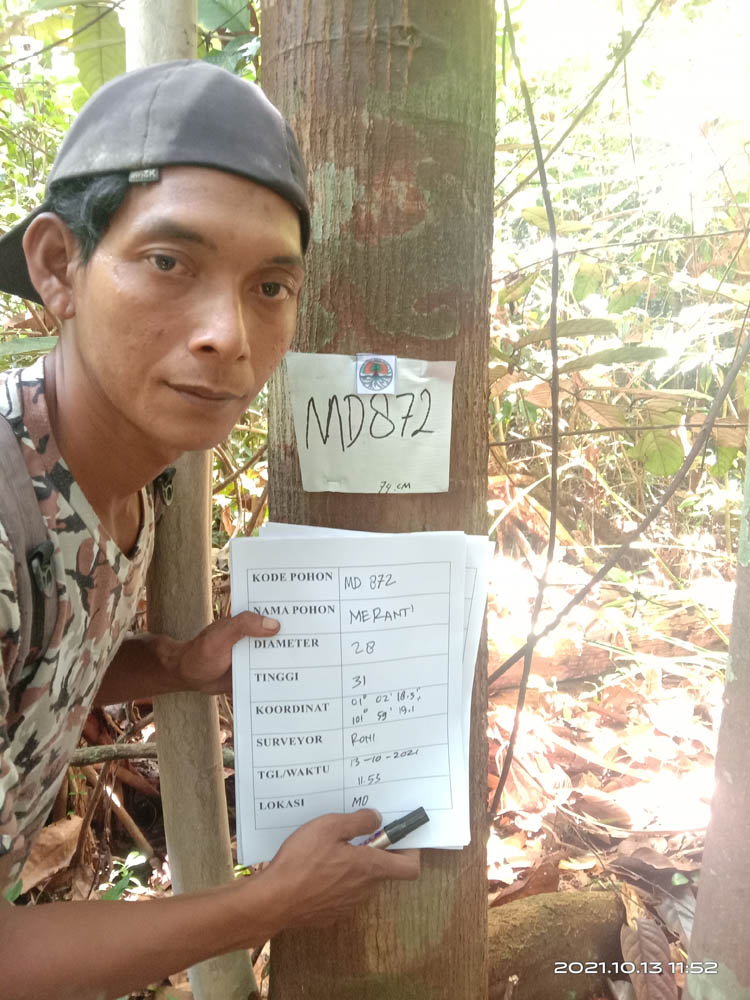 MD872
74.CM
KODE POHON MD 872
NAMA POHON MERANTI
DIAMETER 28
TINGGI 31
KOORDINAT 01° 02' 18.3",
101° 59' 19.1
SURVEYOR ROMI
TGL/WAKTU 13-10-2021
11.53
LOKASI MD
2021.10.13 11:52